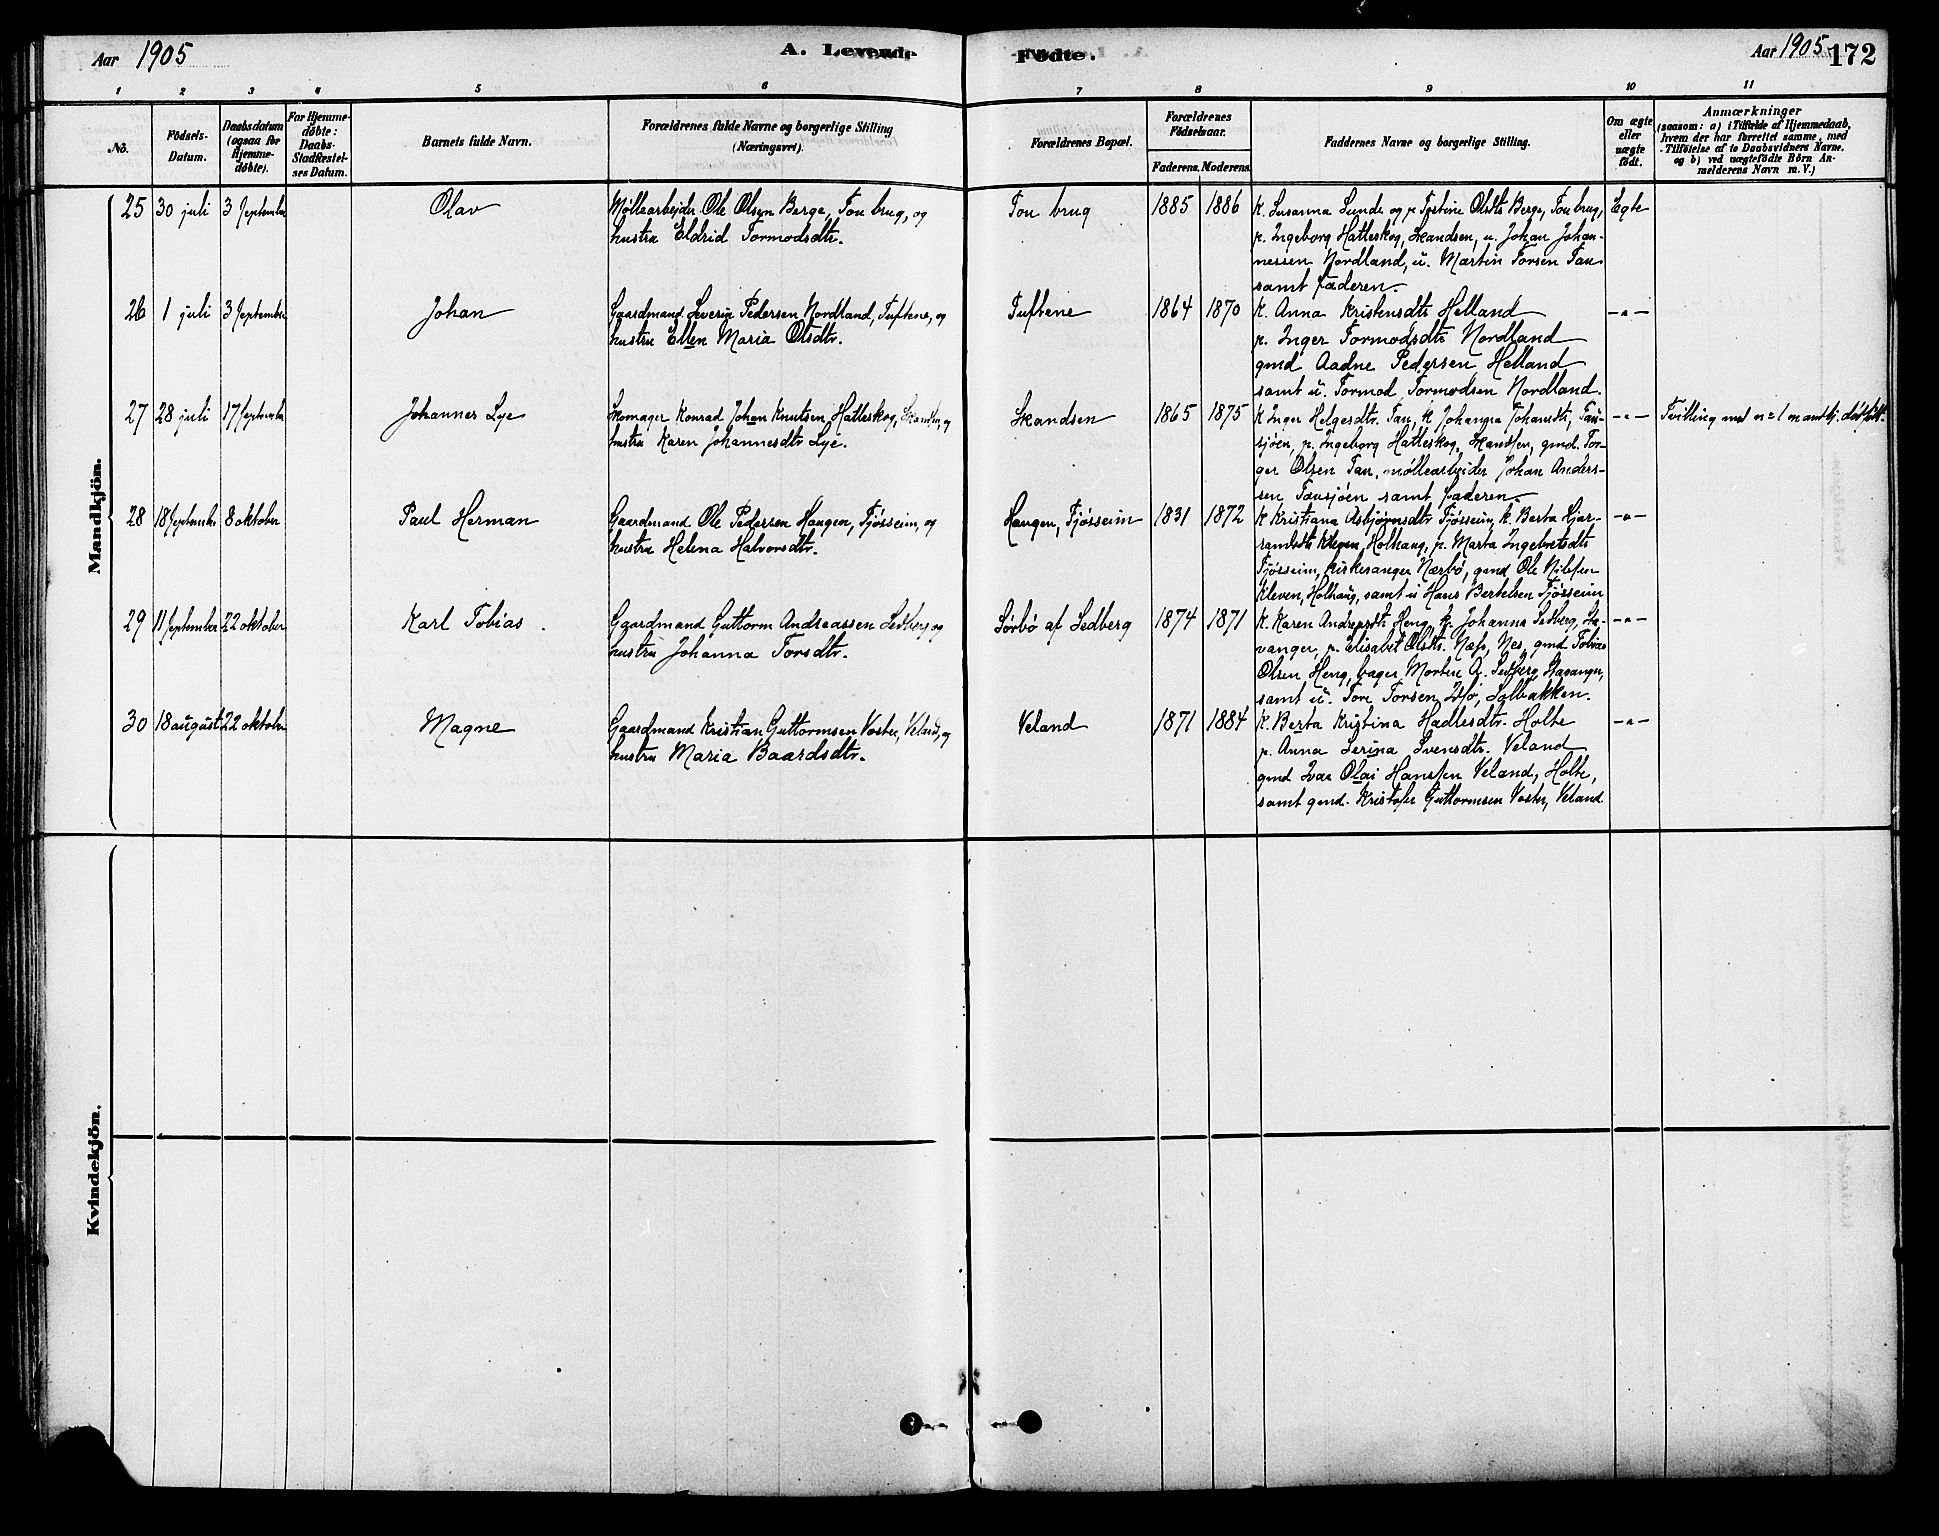 Aar 1905
A. Levende
Fødte.
Aar 1905
172
1 2 3 4 5 6 7 8 9 10 11
No.
Födsels-
Datum.
Daabsdatum
(ogsaa for
Hjemme-
døbte).
For Hjemme-
døbte:
Daabs-
Stadfæstel-
ses Datum.
Barnets fulde Navn.
Forældrenes fulde Navne og borgerlige Stilling
(Næringsvei).
Forældrenes Bopæl.
Forældrenes
Fødselsaar.
Faderens. Moderens.
Faddernes Navne og borgerlige Stilling.
Om ægte
eller
uægte
født.
Anmærkninger
(saasom: a) i Tilfælde af Hjemmedaab,
hvem der har forrettet samme, med
Tilföielse af to Daabsvidners Navne.
og b) ved uægtefödte Börn An-
melderens Navn m. V.)
Mandkjön.
25 30 juli 3 September
Olav
Møllearbejder Ole Olsen Berge, Tou brug, og
hustru Eldrid Tormodsdtr.
Tou brug
1885 1886
K. Susanna Sunde og p. Olsdtr Berge, Tou brug,
p. Ingeborg Hatleskog, Skandsen, u. Johan Johan-
nessen Nordland, u. Martin Torsen Tau
samt faderen.
Egte
26 1 juli 3 September
Johan
Gaardmand Severin Pedersen Nordland, Tuftene, og
hustru Ellen Maria Olsdtr.
Tuftene
1864 1870
K. Anna Kristensdtr Helland
p. Inger Tormodsdtr Nordland
gmd Aadne Pedersen Helland
samt u. Tormod Tormodsen Nordland.
-"-
27 28 juli 17 September
Johannes Lye
Skomager Konrad Johan Knutsen, Hatleskog, Skandsen, og
hustru Karen Johannesdtr Lye.
Skandsen
1865 1875
K Inger Helgesdtr. Tau, K Johanna Johansdtr, Tau-
sjøen, p. Ingeborg Hatleskog, Skandsen, gmd. Tor-
ger Olsen Tau, møllearbejder Johan Anders-
sen Tausjøen samt faderen.
-"-
Tvilling med n= 1 mandkj. dødfødt.
28 18 September 8 oktober
Paul Herman
Gaardmand Ole Pedersen Haugen, Fjøsseim, og
hustru Helena Halvorsdtr.
Haugen, Fjøsseim
1831 1872
K Kristiana Asbjørnsdtr Fjøsseim, k. Berta Hjar-
Kleven, Holhaug, p. Marta Ingebretsdtr
Fjøsseim, kirkesanger Nærbø, gmd Ole Nilssen
Kleven, Holhaug, samt u Hans Bertelsen Fjøsseim
-"-
29 11 September 22 oktober
Karl Tobias
Gaardmand Guttorm Andreassen Sedberg og
hustru Johanna Torsdtr.
Sørbø af Sedberg
1874 1871
K. Karen Andreasdtr Heng, k. Johanna Sedberg, Sta-
vanger, p. Elisabet Olsdtr. Næss, Nes, gmd Tobias
Olsen Heng, bager Morten A. Sedberg, Stavanger,
samt u. Tore Torsen, Solbakken.
-"-
30 18 august 22 oktober
Magne
Gaardmand Kristian Guttormsen Voster, Veland, og
hustru Maria Baardsdtr.
Veland
1871 1884
K. Berta Kristina Hadlesdtr. Holte
p. Anna Serina Svensdtr. Veland
gmd Ivar Olai Hanssen Veland, Holte,
samt gmd. Kristofer Guttormsen Voster, Veland
-"-
Kvindekjön.